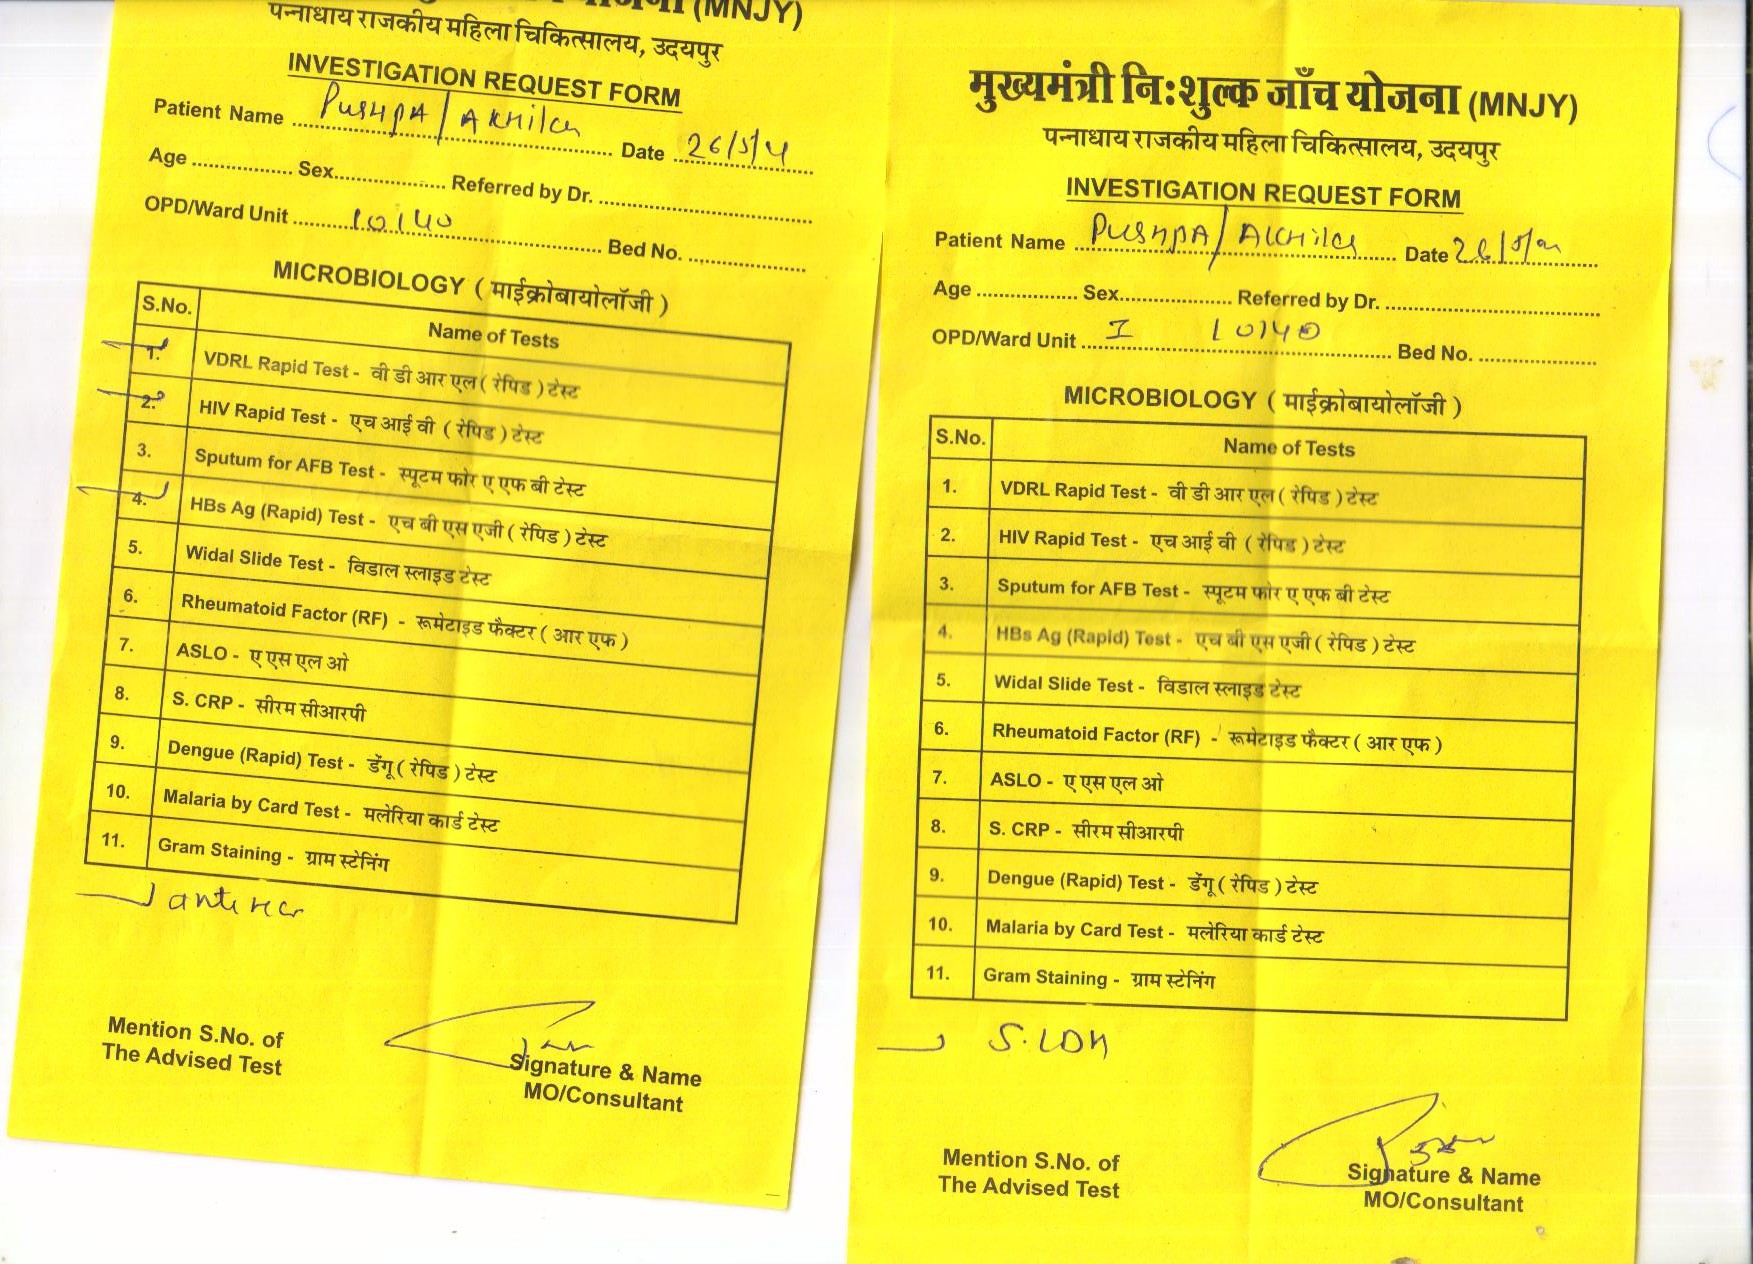 (MNJY)
पन्नाधाय राजकीय महिला चिकित्सालय, उदयपुर
INVESTIGATION REQUEST FORM
Patient Name Pushpa / Akhilesh Date 26/5/4
Age Sex Referred by Dr.
OPD/Ward Unit 10140 Bed No.
MICROBIOLOGY ( माईक्रोबायोलॉजी )
S.No. Name of Tests
1. VDRL Rapid Test - वी डी आर एल ( रेपिड ) टेस्ट
2. HIV Rapid Test - एच आई वी ( रेपिड ) टेस्ट
3. Sputum for AFB Test - स्पूटम फोर ए एफ बी टेस्ट
4. HBs Ag (Rapid) Test - एच बी एस एजी ( रेपिड ) टेस्ट
5. Widal Slide Test - विडाल स्लाइड टेस्ट
6. Rheumatoid Factor (RF) - रूमेटाइड फैक्टर ( आर एफ )
7. ASLO - ए एस एल ओ
8. S. CRP - सीरम सीआरपी
9. Dengue (Rapid) Test - डेंगू ( रेपिड ) टेस्ट
10. Malaria by Card Test - मलेरिया कार्ड टेस्ट
11. Gram Staining - ग्राम स्टेनिंग
anti HCV
Mention S.No. of
The Advised Test
Signature & Name
MO/Consultant
मुख्यमंत्री निःशुल्क जाँच योजना (MNJY)
पन्नाधाय राजकीय महिला चिकित्सालय, उदयपुर
INVESTIGATION REQUEST FORM
Patient Name Pushpa / Akhilesh Date
Age Sex Referred by Dr.
OPD/Ward Unit I 10140 Bed No.
MICROBIOLOGY ( माईक्रोबायोलॉजी )
S.No. Name of Tests
1. VDRL Rapid Test - वी डी आर एल ( रेपिड ) टेस्ट
2. HIV Rapid Test - एच आई वी ( रेपिड ) टेस्ट
3. Sputum for AFB Test - स्पूटम फोर ए एफ बी टेस्ट
4. HBs Ag (Rapid) Test - एच बी एस एजी ( रेपिड ) टेस्ट
5. Widal Slide Test - विडाल स्लाइड टेस्ट
6. Rheumatoid Factor (RF) - रूमेटाइड फैक्टर ( आर एफ )
7. ASLO - ए एस एल ओ
8. S. CRP - सीरम सीआरपी
9. Dengue (Rapid) Test - डेंगू ( रेपिड ) टेस्ट
10. Malaria by Card Test - मलेरिया कार्ड टेस्ट
11. Gram Staining - ग्राम स्टेनिंग
S. LDH
Mention S.No. of
The Advised Test
Signature & Name
MO/Consultant